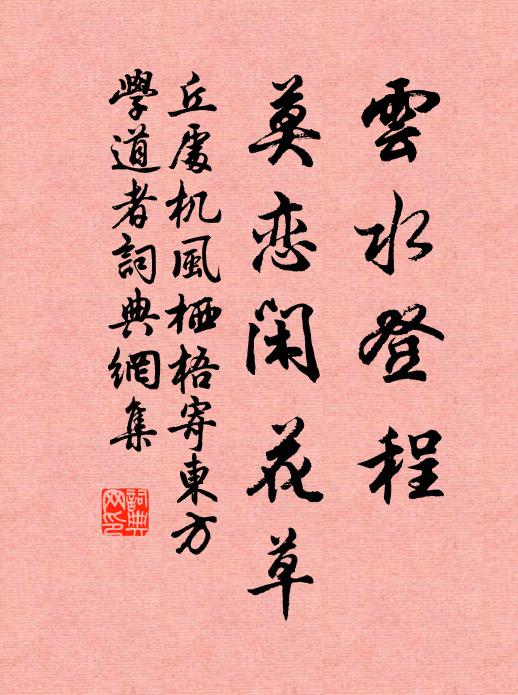 雲水登程
莫恋閑花草
丘處机風栖梧寄東方
學道者詞典網集
詞典
网印